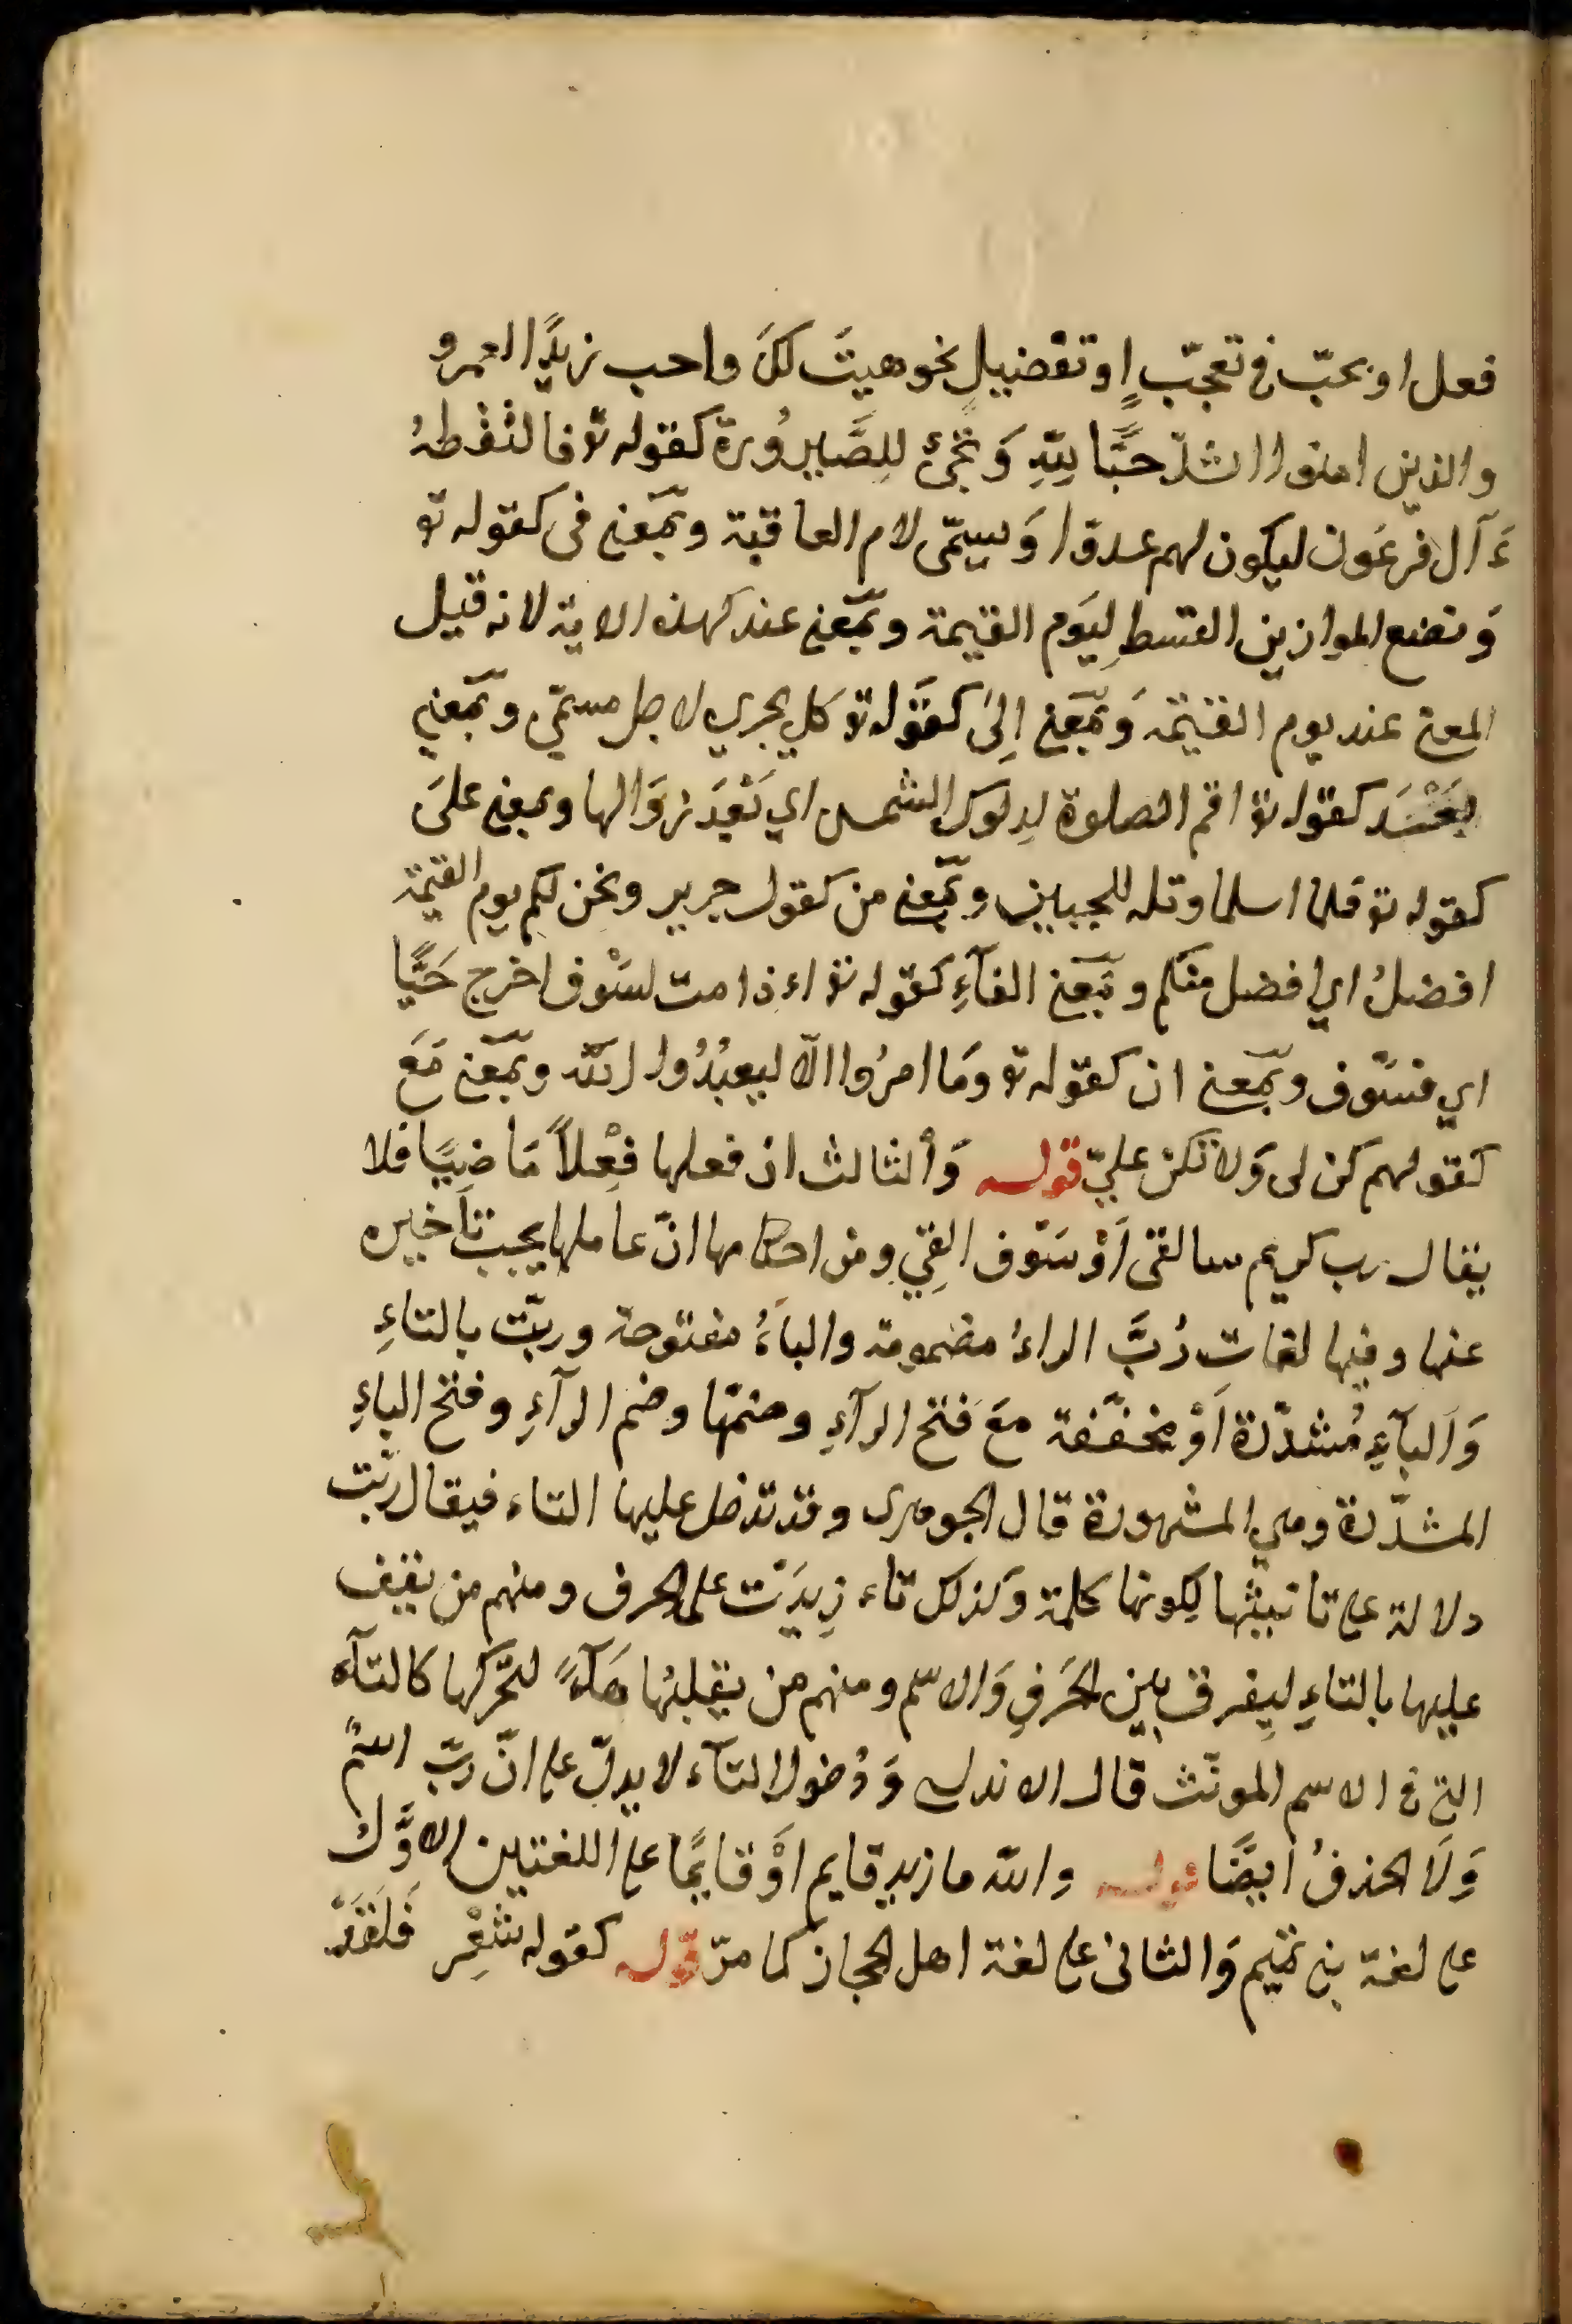 فعل او بحبّ فى تعجّبٍ او تفضيلٍ نحو هيتَ لكَ واحب زيدًا لعمرو
والذين امنوا اشدّ حبًّا لِلّهِ وَتجئ للِصَّيرُورة كقوله تع فالتقطهُ
ءَ آل فرعَون ليكون لهم عدوّا وَيسمّى لام العاقبة وبمَعنى فى كقوله تع
وَنضع الموازين القسط لِيَوم القيمة وبمَعنى عند كهذه الاية لانه قيل
المعنى عند يوم القيٰمة وَبمَعنى اِلىَ كقوَله تع كل يجري لاجل مسمّى وبمَعنى
بَعْد كقوله تع اقم الصلوة لدلوك الشمس اي بَعْدَ زوَالها وبمعنى علىَ
كقوله تع فلما اسلما وتله للجبين وبمَعنى من كقول جرير ونحن لكم يوم القيمة
افضلُ اي افضل منكم وبمَعنى الفآءِ كقوله تع اءذا مت لسَوْف اخرج حَيًّا
اي فسَوف وبمَعنى ان كقوله تع وَما امرُوا الّا ليعبُدُوا اللّه وبمَعنى مَعَ
كقولهم كن لى وَلا تكن عليّ قوله وَالثالث ان فعلها فِعْلاً مَاضِيًا فلا
يقال رب كريم سالقى اَوْ سَوْف القِي ومن احكامها انّ عاملها يجب تاَخيره
عنها وفيها لغات رُبَّ الراءُ مضمومة والباءُ مفتوحة وربّت بالتاءِ
وَالبآءِ مُشدّدة اَوْ مخفّفة مَعَ فتح الرآءِ وضمّها وضم الرآءِ وفتح الباءِ
المشدّدة وهي المشهورة قال الجوهرى وقد تدخل عليها التاء فيقال ربّت
دلالة على تانيثها لِكونها كلمة وَكذلك تاء زِيدَتْ على الحرف ومنهم من يقف
عليها بالتاءِ لِيفرق بين الحَرفِ وَالاسم ومنهم من يقلبُها هَآءً لتحَركها كالتآء
التى فى الاسم المونّث قال الاندلسى وَدُخول التآء لا يدلّ على انّ ربّ اسْمٌ
وَلَا الحذفُ اَيضًا قوله واللّه ما زيد قايم اوَْ قايمًا على اللغتين الاوَّل
على لغة بنى تميم وَالثانى على لغة اهل الحجاز كما مرّ قوله كقوله شعِر فَلَقَدْ